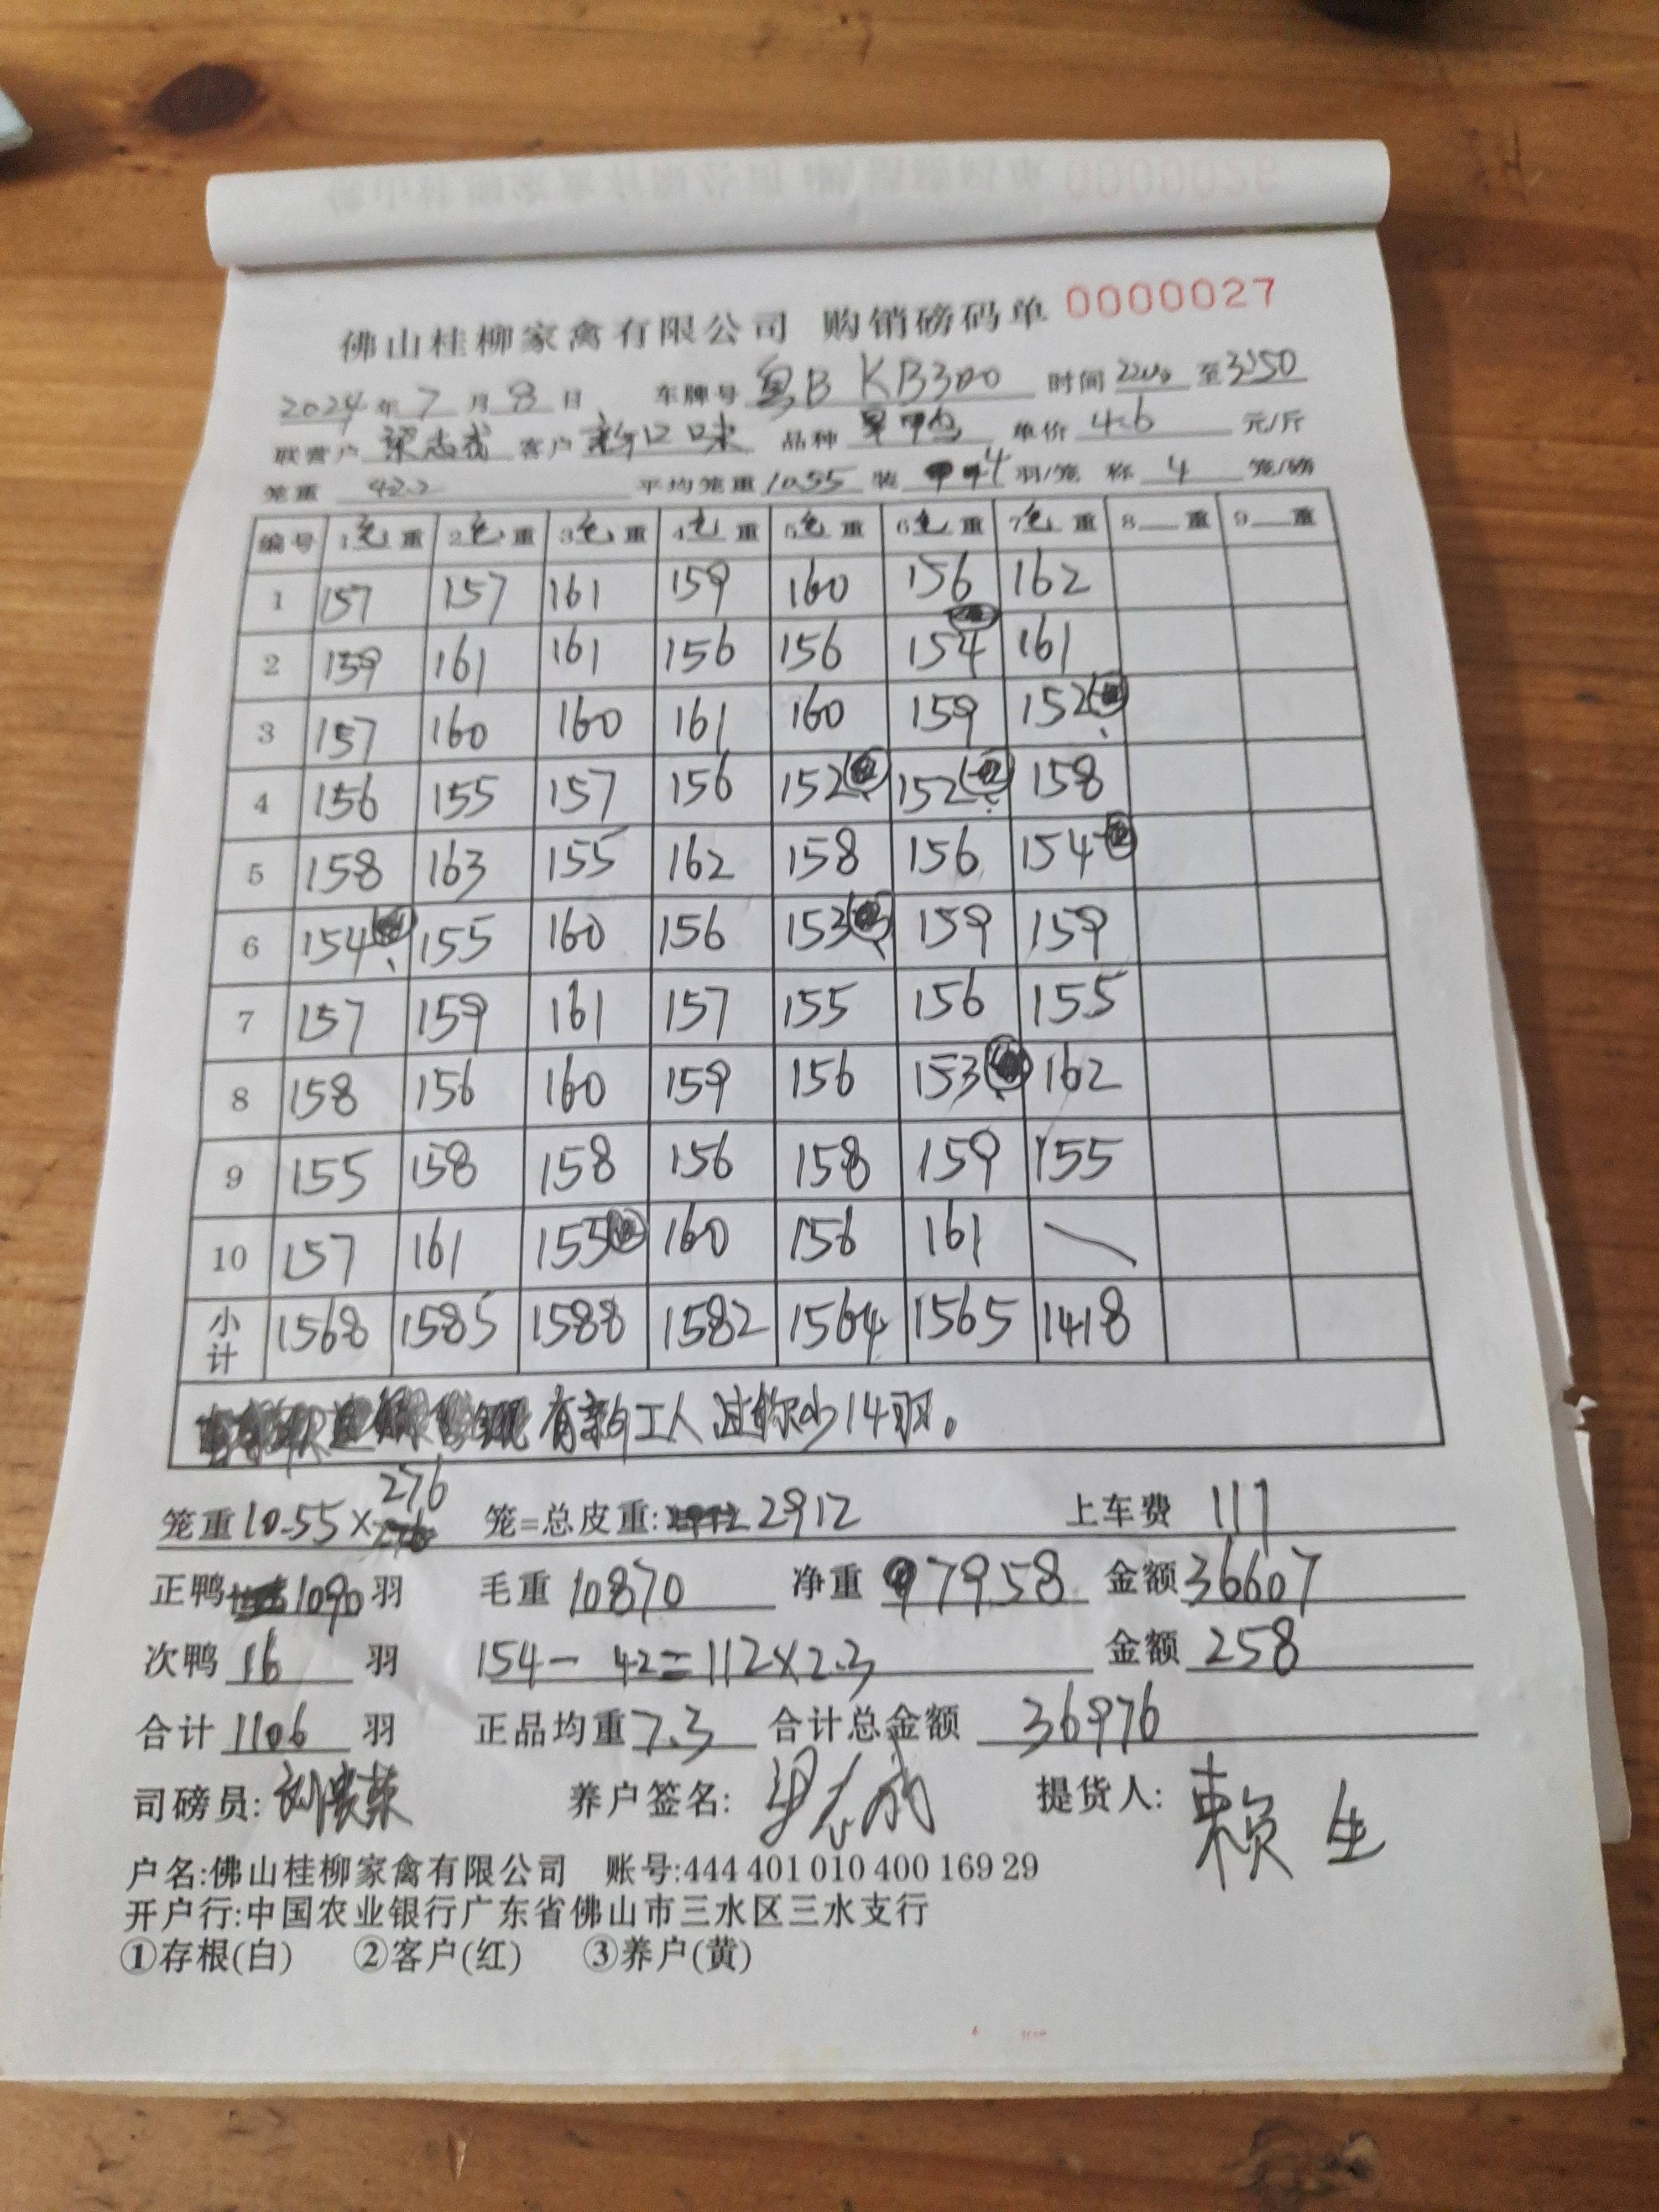 佛山桂柳家禽有限公司 购销磅码单 0000027
2024年7月8日 车牌号 粤B KB300 时间 2200 至3:50
联营户 梁志成 客户 新口味 品种 单价 4.6 元/斤
笼重 42.2 平均笼重 10.55 装 4 羽/笼 称 4 笼/磅
编号 1毛重 2毛重 3毛重 4毛重 5毛重 6毛重 7毛重 8 重 9 重
1 157 157 161 159 160 156 162
2 159 161 161 156 156 154 161
3 157 160 160 161 160 159 152
4 156 155 157 156 152 152 158
5 158 163 155 162 158 156 154
6 154 155 160 156 153 159 159
7 157 159 161 157 155 156 155
8 158 156 160 159 156 153 162
9 155 158 158 156 158 159 155
10 157 161 155 160 156 161
小计 1568 1585 1588 1582 1564 1565 1418
有新工人过称少14羽。
笼重10.55×276 笼=总皮重:2912 上车费 111
正鸭1090羽 毛重 10870 净重 7958 金额36607
次鸭 16 羽 154- 42=112×2.3 金额 258
合计 1106 羽 正品均重7.3 合计总金额 36976
司磅员: 养户签名:梁志成 提货人:赖生
户名:佛山桂柳家禽有限公司 账号:444 401 010 400 169 29
开户行:中国农业银行广东省佛山市三水区三水支行
①存根(白) ②客户(红) ③养户(黄)